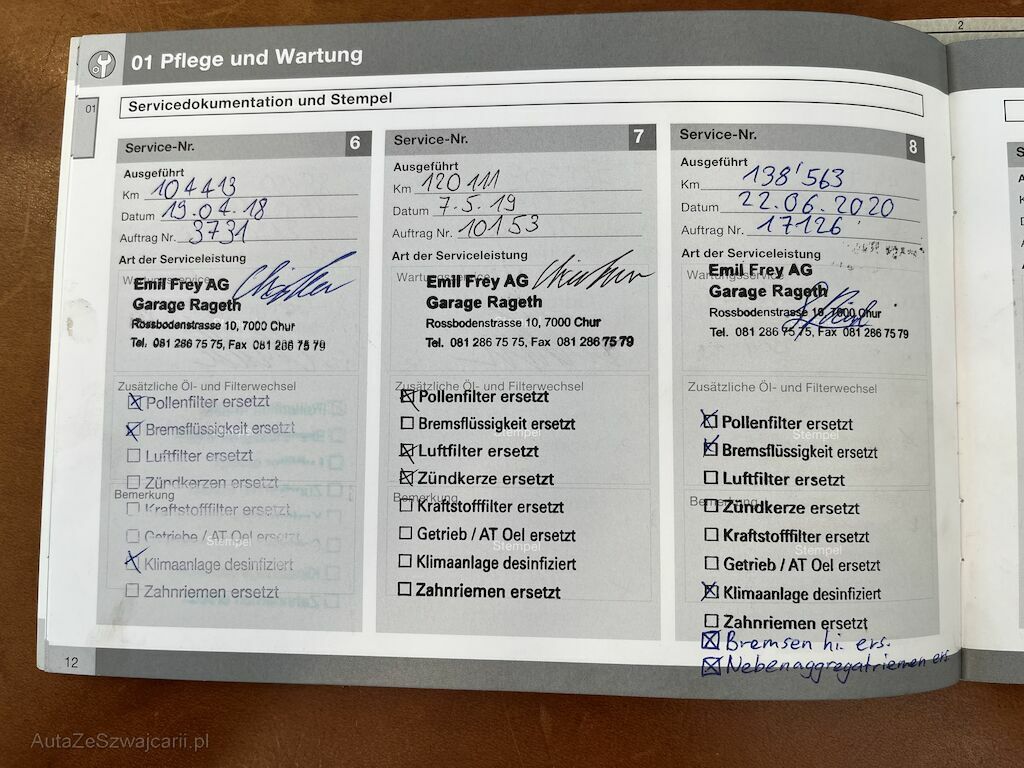 2
01 Pflege und Wartung
01
Servicedokumentation und Stempel
Service-Nr. 6
Ausgeführt
Km 104413
Datum 19.04.18
Auftrag Nr. 3731
Art der Serviceleistung
Wartungsservice
Emil Frey AG
Garage Rageth
Rossbodenstrasse 10, 7000 Chur
Tel. 081 286 75 75, Fax 081 286 75 79
Zusätzliche Öl- und Filterwechsel
☒ Pollenfilter ersetzt
☒ Bremsflüssigkeit ersetzt
☐ Luftfilter ersetzt
☐ Zündkerzen ersetzt
Bemerkung
☐ Kraftstofffilter ersetzt
☐ Getriebe / AT Oel ersetzt
Stempel
☒ Klimaanlage desinfiziert
☐ Zahnriemen ersetzt
Service-Nr. 7
Ausgeführt
Km 120111
Datum 7.5.19
Auftrag Nr. 10153
Art der Serviceleistung
Wartungsservice
Emil Frey AG
Garage Rageth
Rossbodenstrasse 10, 7000 Chur
Tel. 081 286 75 75, Fax 081 286 75 79
Zusätzliche Öl- und Filterwechsel
☒ Pollenfilter ersetzt
☐ Bremsflüssigkeit ersetzt
Stempel
☒ Luftfilter ersetzt
☒ Zündkerze ersetzt
Bemerkung
☐ Kraftstofffilter ersetzt
☐ Getrieb / AT Oel ersetzt
Stempel
☐ Klimaanlage desinfiziert
☐ Zahnriemen ersetzt
Service-Nr. 8
Ausgeführt
Km 138'563
Datum 22.06.2020
Auftrag Nr. 17126
Art der Serviceleistung
Wartungsservice
Emil Frey AG
Garage Rageth
Rossbodenstrasse 10, 7000 Chur
Tel. 081 286 75 75, Fax 081 286 75 79
Zusätzliche Öl- und Filterwechsel
☒ Pollenfilter ersetzt
Stempel
☒ Bremsflüssigkeit ersetzt
☐ Luftfilter ersetzt
Bemerkung
☐ Zündkerze ersetzt
☐ Kraftstofffilter ersetzt
Stempel
☐ Getrieb / AT Oel ersetzt
☒ Klimaanlage desinfiziert
☐ Zahnriemen ersetzt
☒ Bremsen hi. ers.
☒ Nebenaggregatriemen ers.
12
AutaZeSzwajcarii.pl